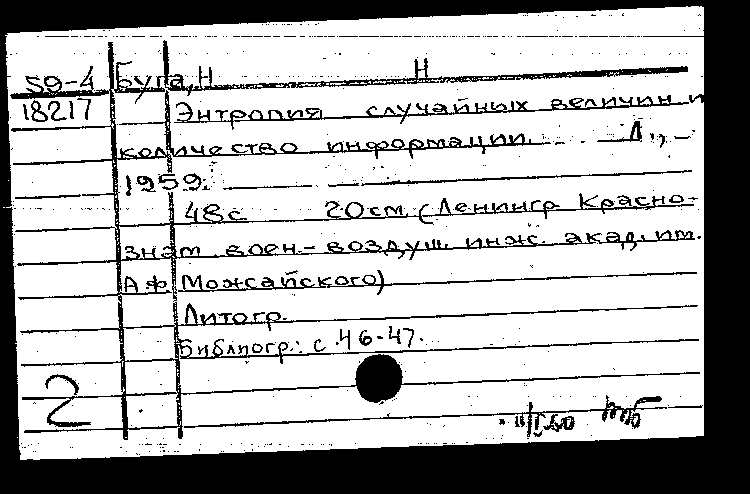 59-4 Буга, Н Н
18217 Энтропия случайных величин и
количество информации. Л.,
1959.
48с 20см. (Ленингр Красно-
знам. воен.-воздуш. инж. акад. им.
А.Ф. Можайского)
Литогр.
Библиогр.: с 46-47.
2